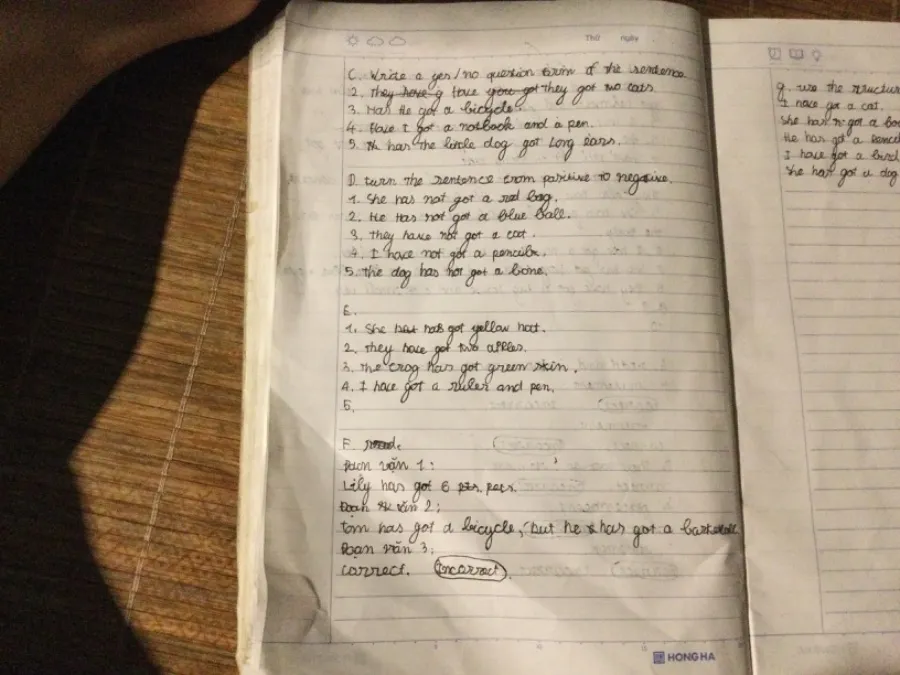 Thứ ngày
C. Write a yes/no question form of the sentence
2. They have g Have you got they got two cats.
3. Has He got a bicycle.
4. Have I got a notbook and a pen.
5. has the little dog got long ears.
D. turn the sentence from positive to negative.
1. She has not got a red bag.
2. He Has not got a blue ball.
3. They have not got a cat.
4. I have not got a
5. the dog has not got a bone.
E.
1. She has got yellow hat.
2. They have got two apples.
3. the has got green skin.
4. I have got a ruler and pen.
5.
F. read.
Đoạn văn 1:
Lily has got 6 pets.
Đoạn văn 2:
tom has got a bicycle, but he has got a
Đoạn văn 3:
correct. Incorrect.
HONG HA
g. use the
I have got a cat.
She has got a
He has got a
I have got a bird
She has got a dog